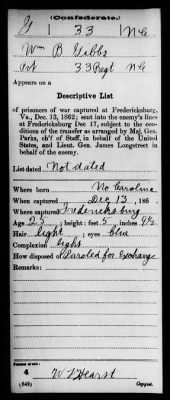 (Confederate.)
G | 33 | N C
Wm B Gibbs
Pvt 33 Regt N C
Appears on a
Descriptive List
of prisoners of war captured at Fredericksburg,
Va., Dec. 13, 1862; sent into the enemy's lines
at Fredericksburg Dec 17, subject to the condi-
tions of the transfer as arranged by Maj. Gen.
Parks, ch'f of Staff, in behalf of the United
States, and Lieut. Gen. James Longstreet in
behalf of the enemy.
List dated Not dated
Where born No Carolina
When captured Dec 13, 186
Where captured Fredericksburg
Age 25; height: feet 5 inches 9½
Hair light; eyes blue
Complexion light
How disposed of Paroled for Exchange
Remarks:
4 W T Hearst
(649) Copyist.